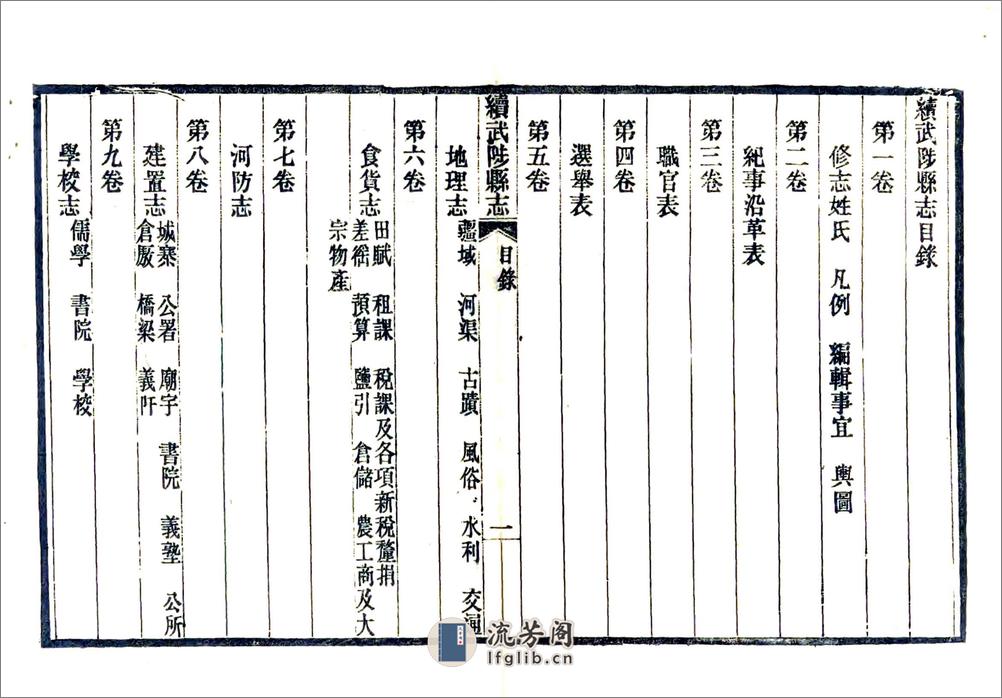 續武陟縣志目錄
第一卷
修志姓氏 凡例 編輯事宜 輿圖
第二卷
紀事沿革表
第三卷
職官表
第四卷
選舉表
第五卷
續武陟縣志 目錄 一
地理志 疆域 河渠 古蹟 風俗 水利 交通
第六卷
食貨志 田賦 租課 稅課及各項新稅釐捐
差徭 預算 鹽引 倉儲 農工商及大
宗物產
第七卷
河防志
第八卷
建置志 城寨 公署 廟宇 書院 義塾 公所
倉厫 橋梁 義阡
第九卷
學校志 儒學 書院 學校
流芳阁
lfglib.cn